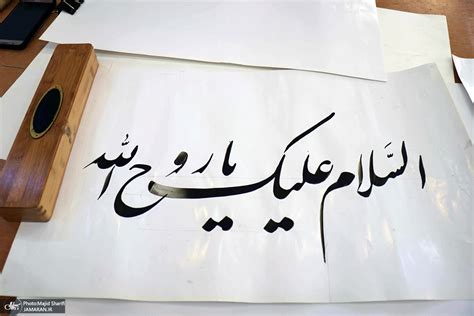 السَّلام علیک یا روح الله
Photo:Majid Sharifi
JAMARAN.IR